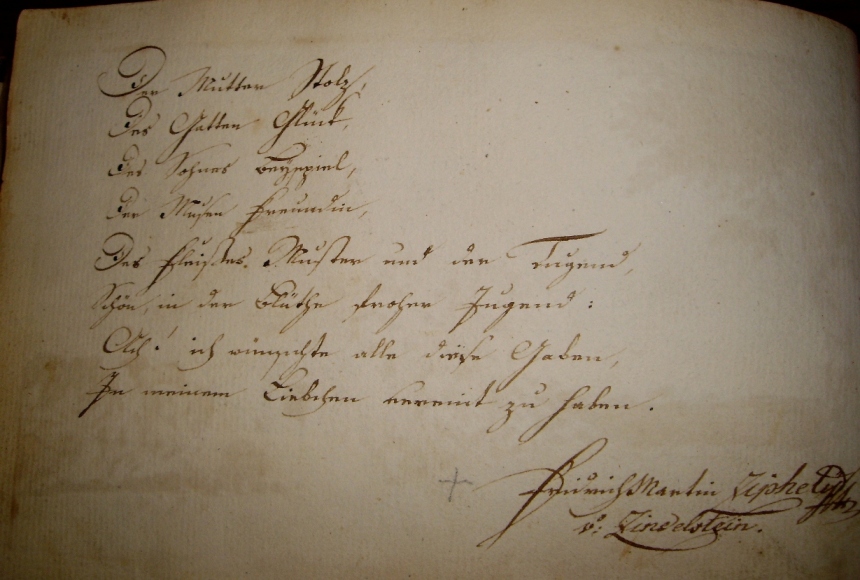 Der Mutter Stolz,
Des Gatten Glück,
Des Sohnes Beyspiel,
Der Musen Freundin,
Des Fleißes Muster und der Tugend,
Schön, in der Blüthe froher Jugend:
Ach! ich wünschte alle diese Gaben,
In meinem Liebchen vereint zu haben.
Friedrich Martin
v: Lindelstein.